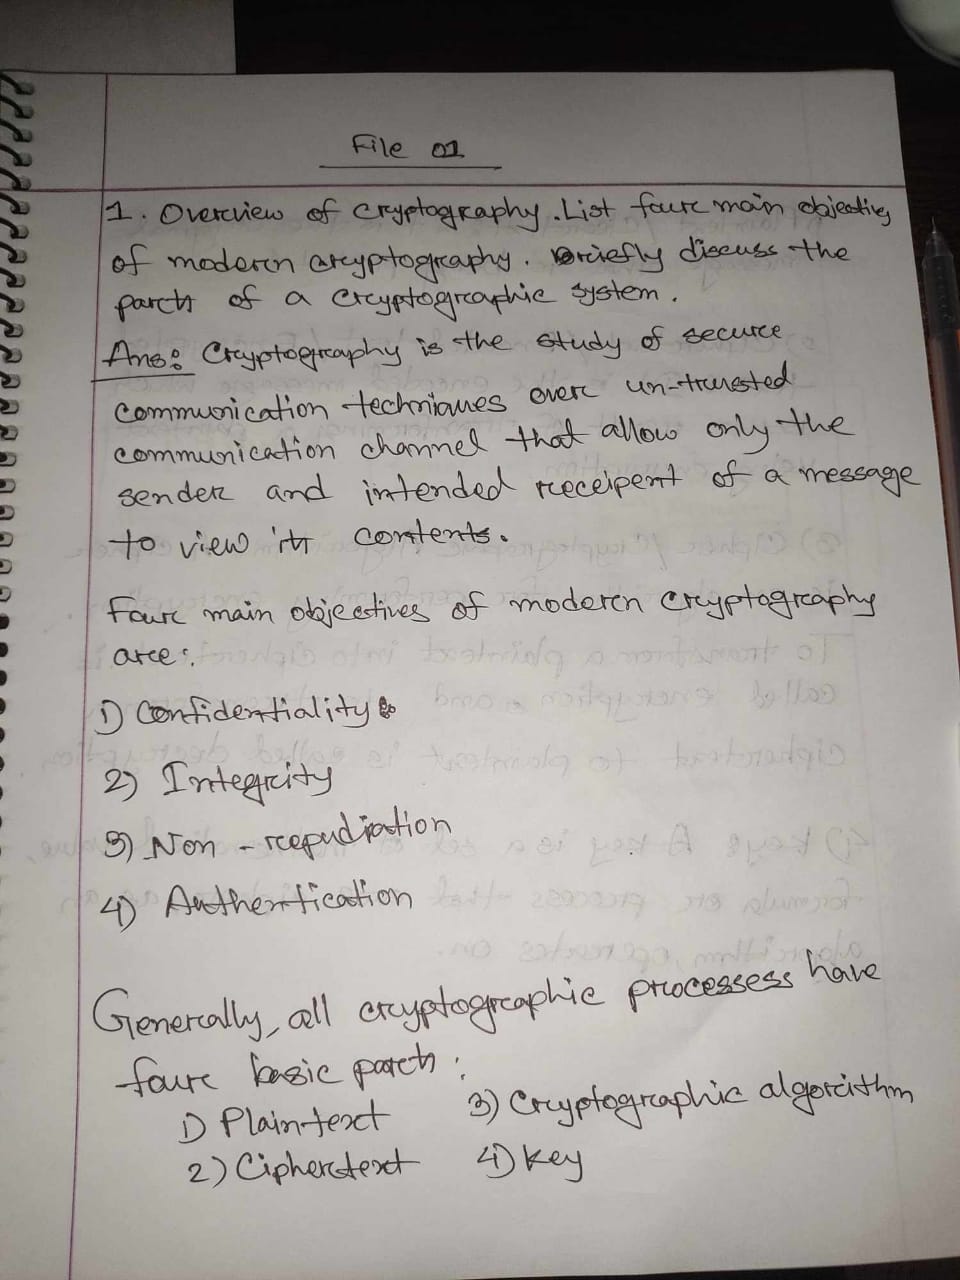 File 01
1. Overview of cryptography. List four main objectives
of modern cryptography. Briefly discuss the
parts of a cryptographic system.
Ans: Cryptography is the study of secure
communication techniques over un-trusted
communication channel that allow only the
sender and intended receipent of a message
to view its contents.
Four main objectives of modern cryptography
are:
1) Confidentiality
2) Integrity
3) Non-repudiation
4) Authentication
Generally, all cryptographic processess have
four basic parts:
1) Plaintext
2) Ciphertext
3) Cryptographic algorithm
4) Key